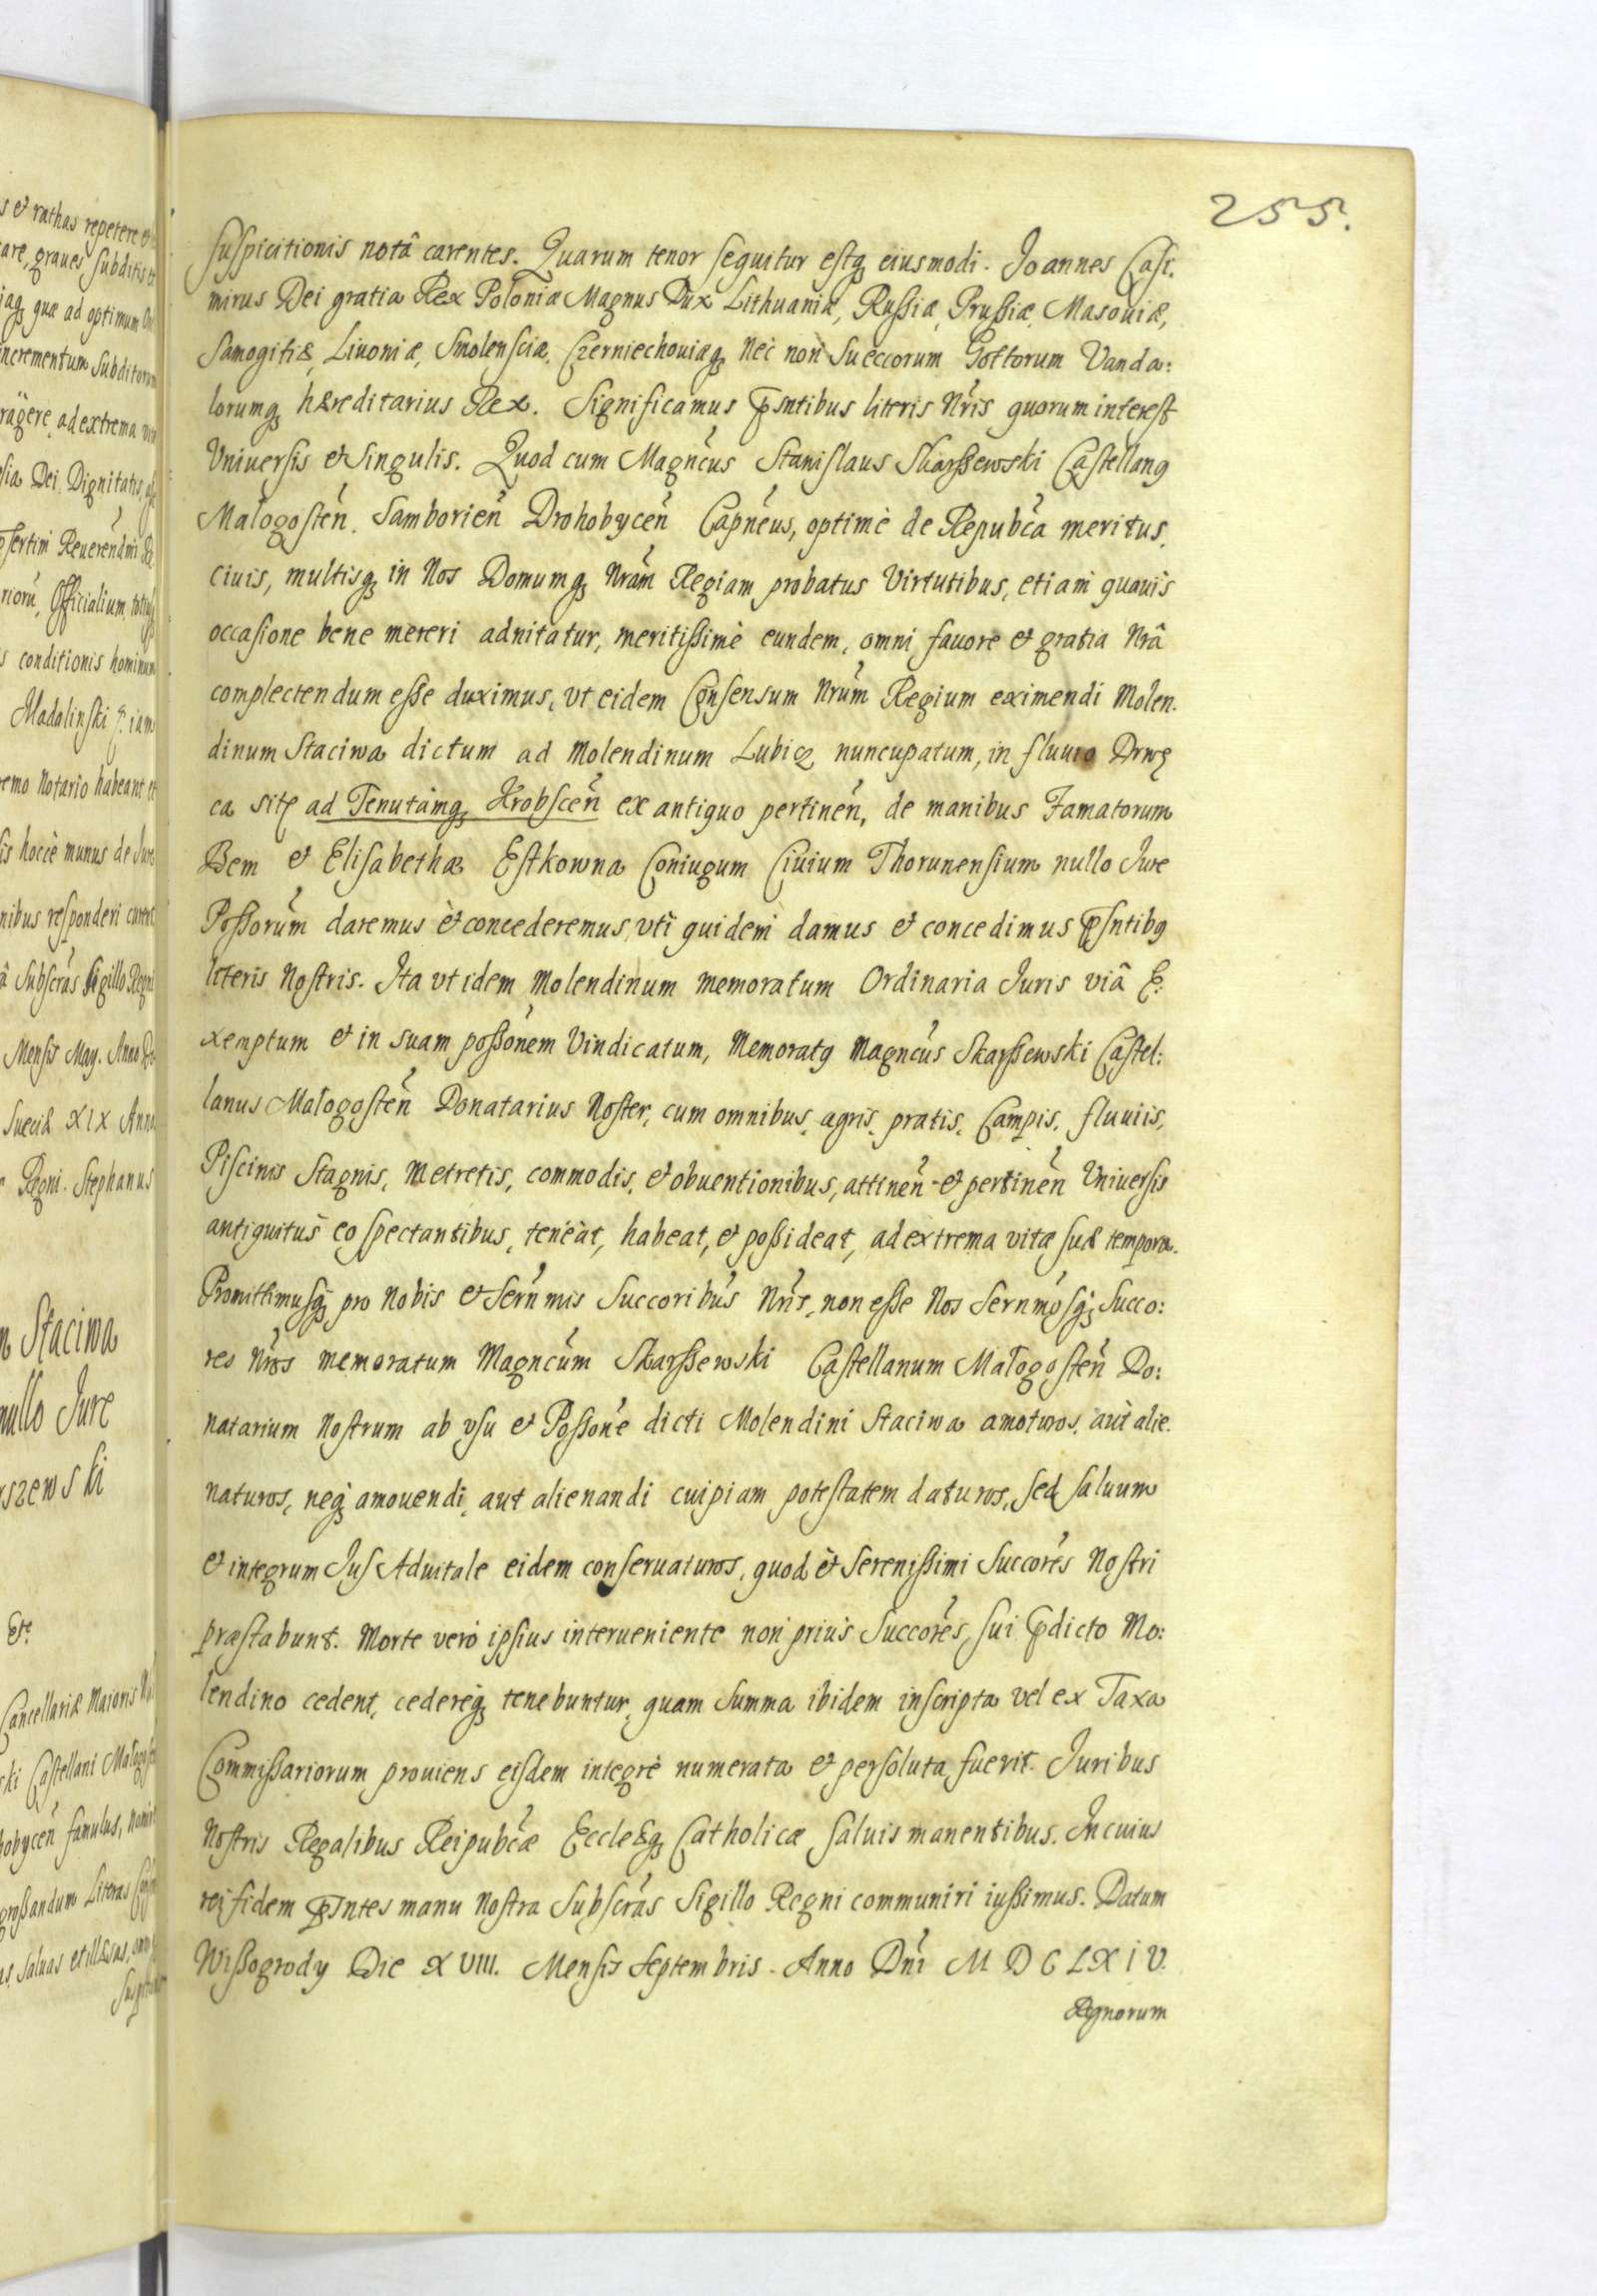 255.
s et rathas repetere et
are, graues, Subditis et
iaq, quæ ad optimum
ncrementum Subditorum
ragere, ad extrema vitæ
sia Dei Dignitatis
sertim Reuerendmi
riorũ, Officialium
s conditionis hominum
Madalinski iam
emo Notario habeant et
is hocce munus de Jure
nibus responderi curent
â Subscr̃as Sigillo Regni
Mensis May. Anno
Sueciæ XIX Anno
Regni. Stephanus
Staciwa
nullo Jure
szewski
Etc
Cancellariæ Maioris
ski Castellani Małogost
hobycen̄ famulus, nomine
grossandum Literas
as, saluas et illæsas,
Suspicitionis notâ carentes. Quarum tenor sequitur estq eiusmodi. Joannes Casi.
mirus Dei gratia Rex Poloniæ Magnus Dux Lithuaniæ, Russiæ, Prussiæ, Masouiæ,
Samogitiæ, Liuoniæ, Smolensciæ, Czerniechouiæq, Nec non Sueccorum Gottorum Vanda:
lorumq hæreditarius Rex. Significamus p̃sntibus literis Nr̃is quorum interest
Vniuersis et Singulis. Quod cum Magnc̃us Stanislaus Skarssewski Castellanq
Małogosten̄, Samborien̄ Drohobycen̄ Capn̄eus, optimè de Repubc̃a meritus,
ciuis, multisq in Nos Domumq Nram̃ Regiam probatus Virtutibus, etiam quauis
occasione bene mereri adnitatur, meritissimè eundem, omni fauore et gratia Nrâ
complectendum esse duximus, vt eidem Consensum Nrum̃ Regium eximendi Molen.
dinum Staciwa dictum ad Molendinum Lubicz nuncupatum, in fluuio Drwę
ca sitę ad Tenutamq Krobscen̄ ex antiquo pertinen̄, de manibus Famatorum
Bem et Elisabethæ Estkowna Coniugum Ciuium Thorunensium nullo Jure
Possorum̃ daremus et concederemus, vti quidem damus et concedimus p̃sntibq
literis Nostris. Ita vt idem Molendinum memoratum Ordinaria Juris viâ E:
xemptum et in suam posson̄em Vindicatum, Memoratq Magnc̃us Skarssewski Castel:
lanus Małogosten̄ Donatarius Noster, cum omnibus, agris, pratis, Campis, fluuiis,
Piscinis Stagnis, Metretis, commodis, et obuentionibus, attinen̄ et pertinen̄ Vniuersis
antiquitus eo spectantibus, teneat, habeat, et possideat, ad extrema vitæ suæ tempora.
Promittimusq pro Nobis et Sern̄mis Succoribus̃ Nr̃is, non esse Nos Sern̄mosq Succo:
res Nr̃os memoratum Magnc̃um Skarssewski Castellanum Małogosten̄ Do:
natarium Nostrum ab vsu et Posson̄e dicti Molendini Staciwa amoturos, aut alie.
naturos, neq amouendi, aut alienandi cuipiam potestatem daturos, sed saluum
et integrum Jus Aduitale eidem conseruaturos, quod et Serenissimi Succores̃ Nostri
præstabunt. Morte vero ipsius interueniente non prius Succores̃ sui p̃dicto Mo:
lendino cedent, cedereq tenebuntur, quam Summa ibidem inscripta vel ex Taxa
Commissariorum prouiens eisdem integrè numerata et persoluta fuerit. Juribus
Nostris Regalibus Reipubc̃æ Ecclesiæq Catholicæ saluis manentibus. In cuius
rei fidem p̃sntes manu Nostra Subscr̃as Sigillo Regni communiri iussimus. Datum
Wissogrody Die XVIII. Mensis Septembris. Anno Dn̄i MDCLXIV.
Regnorum